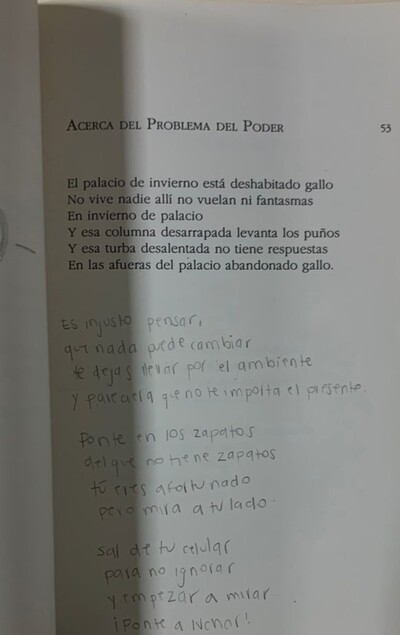 ACERCA DEL PROBLEMA DEL PODER 53
El palacio de invierno está deshabitado gallo
No vive nadie allí no vuelan ni fantasmas
En invierno de palacio
Y esa columna desarrapada levanta los puños
Y esa turba desalentada no tiene respuestas
En las afueras del palacio abandonado gallo.
Es injusto pensar,
que nada puede cambiar
te dejas llevar por el ambiente
y pareciera que no te importa el presente.
Ponte en los zapatos
del que no tiene zapatos
tú eres afortunado
pero mira a tu lado.
sal de tu celular
para no ignorar
y empezar a mirar
¡Ponte a luchar!